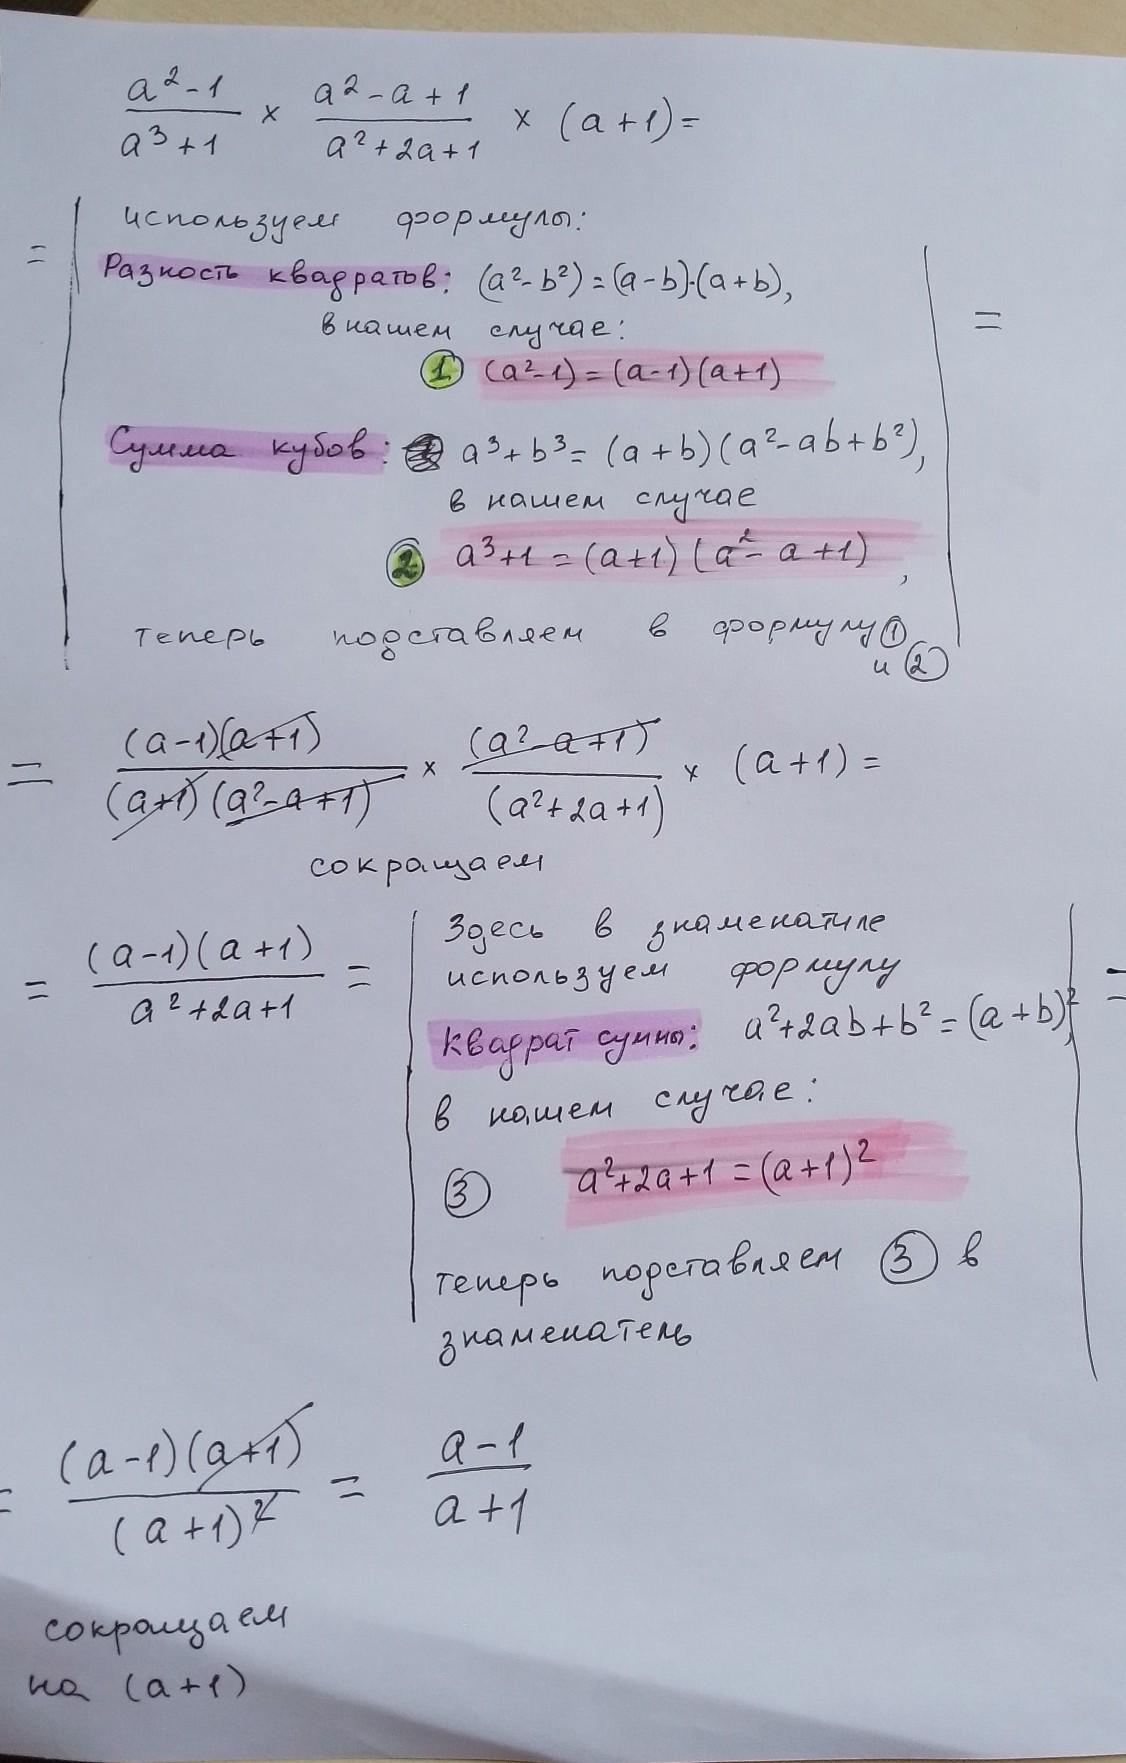 a² - 1 / a³ + 1 × a² - a + 1 / a² + 2a + 1 × (a + 1) =
используем формулы:
= Разность квадратов: (a² - b²) = (a - b)·(a + b), =
в нашем случае:
① (a² - 1) = (a - 1)(a + 1)
Сумма кубов: a³ + b³ = (a + b)(a² - ab + b²),
в нашем случае
② a³ + 1 = (a + 1)(a² - a + 1),
теперь подставляем в формулу ①
и ②
= (a - 1)(a + 1) / (a + 1)(a² - a + 1) × (a² - a + 1) / (a² + 2a + 1) × (a + 1) =
сокращаем
= (a - 1)(a + 1) / a² + 2a + 1 =
Здесь в знаменатиле
используем формулу
квадрат суммы: a² + 2ab + b² = (a + b)², =
в нашем случае:
③ a² + 2a + 1 = (a + 1)²
теперь подставляем ③ в
знаменатель
= (a - 1)(a + 1) / (a + 1)² = a - 1 / a + 1
сокращаем
на (a + 1)